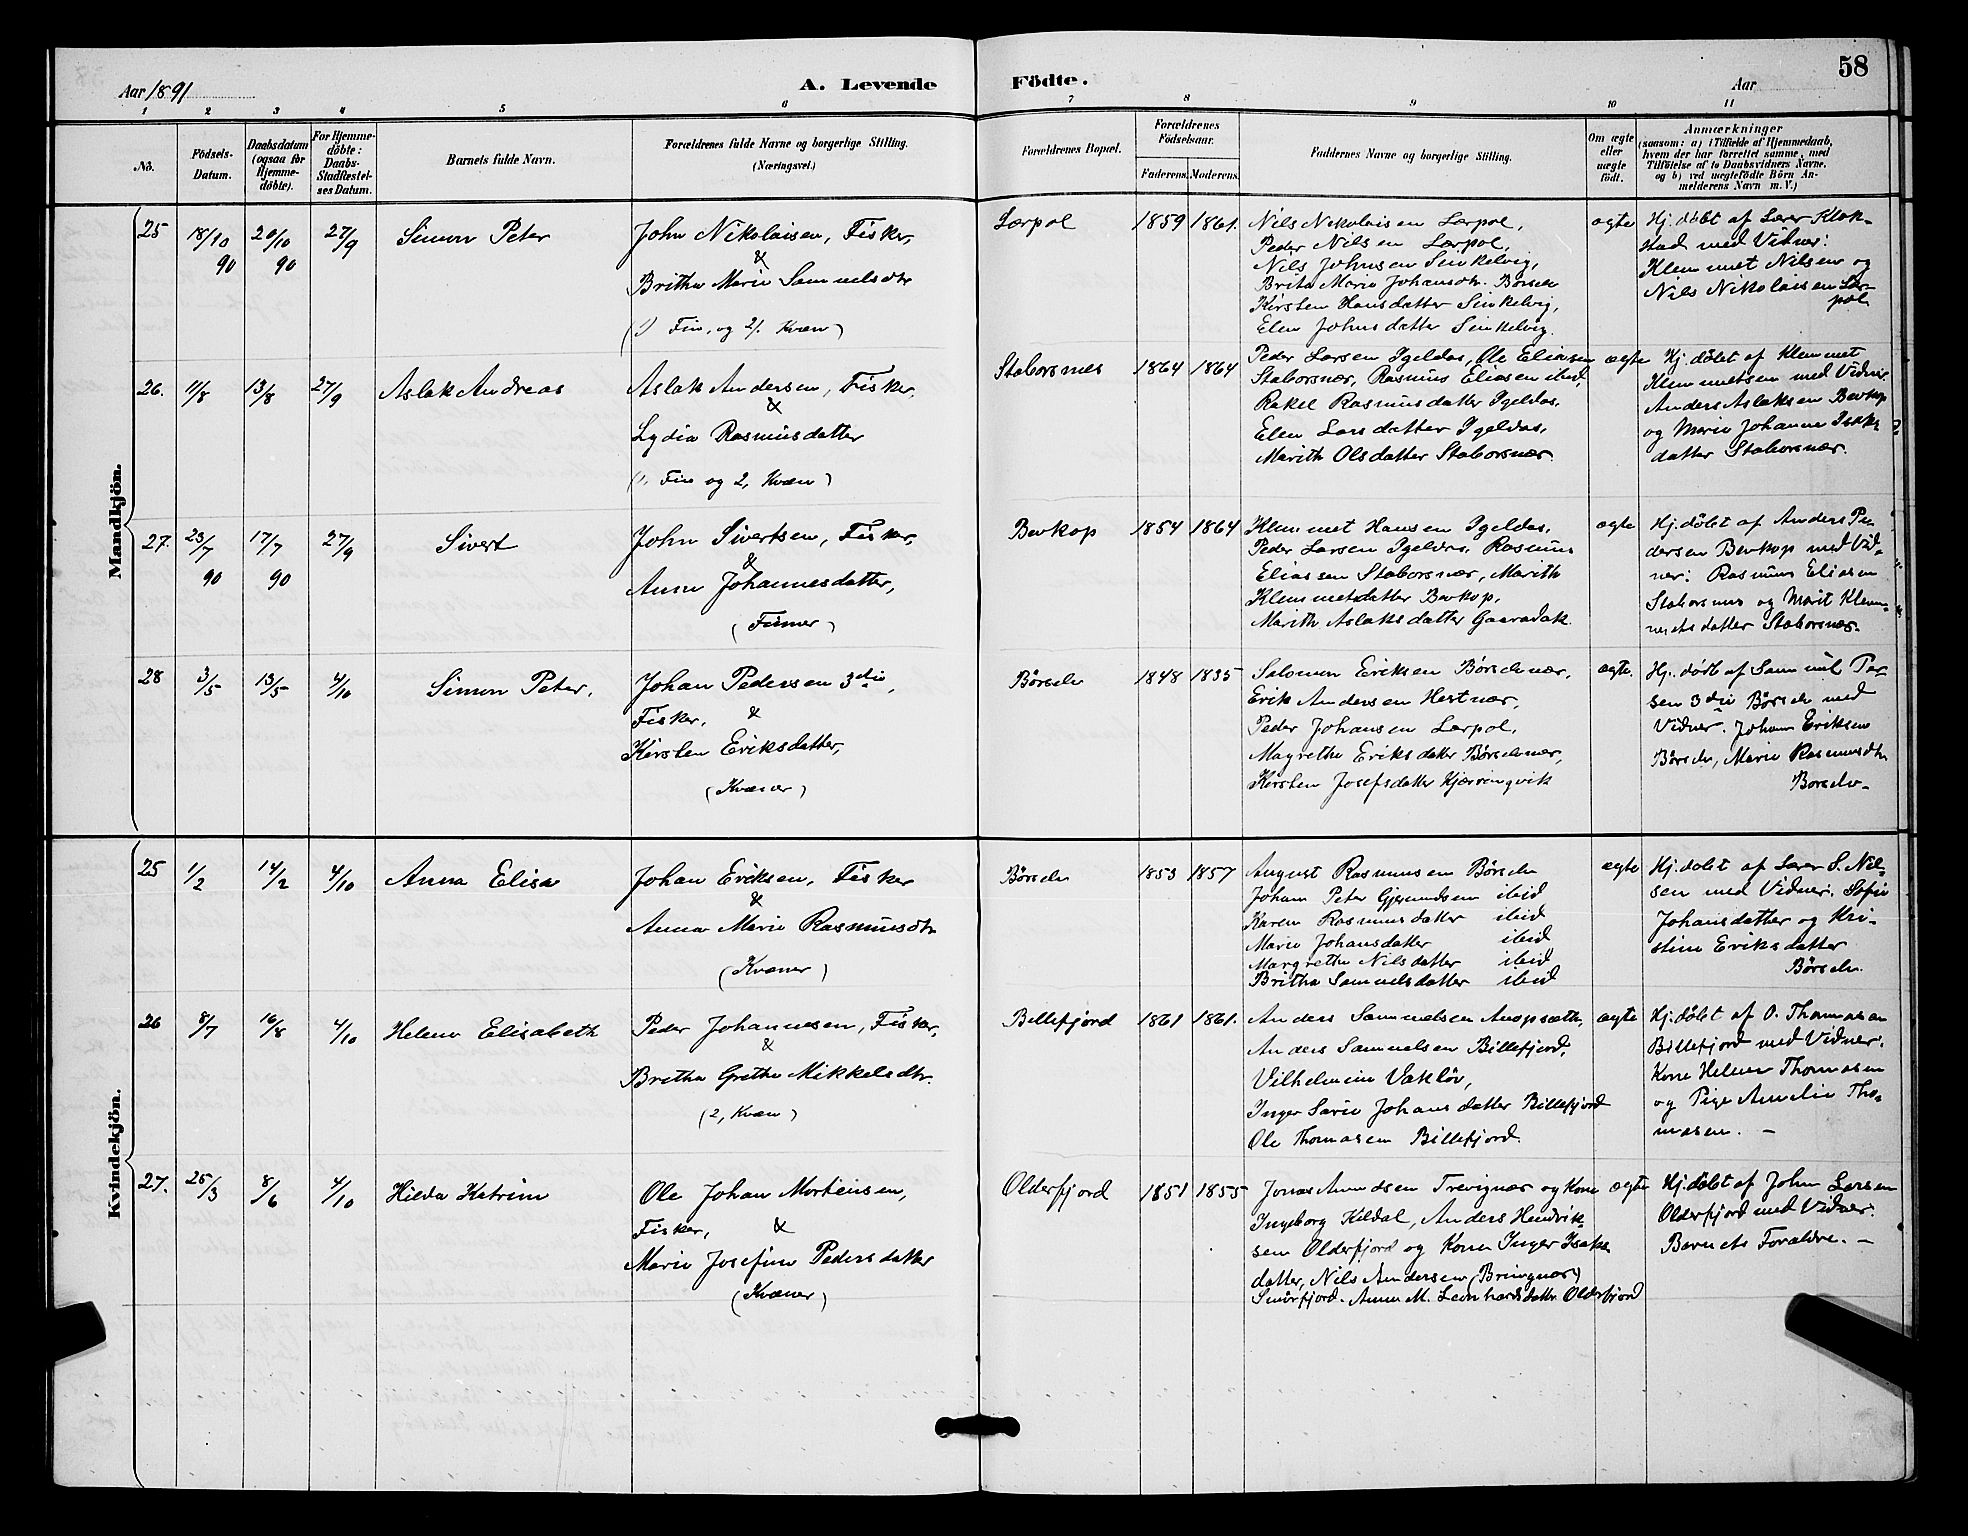 58
Aar 1891
A. Levende Födte.
Aar
1 2 3 4 5 6 7 8 9 10 11
No.
Födsels-Datum.
Daabsdatum (ogsaa för Hjemme-döbte).
For Hjemme-döbte: Daabs-Stadfæstel-ses Datum.
Barnets fulde Navn.
Forældrenes fulde Navne og borgerlige Stilling. (Næringsvei.)
Forældrenes Bopæl.
Forældrenes Födselsaar.
Faderens. Moderens.
Faddernes Navne og borgerlige Stilling.
Om ægte eller uægte födt.
Anmærkninger
(saasom: a) i Tilfælde af Hjemmedaab,
hvem der har forrettet samme, med
Tilföielse af to Daabsvidners Navne,
og b) ved uegtefödte Börn An-
melderens Navn m. V.)
Mandkjön.
25 18/10 90 20/10 90 27/9 Simon Peter
John Nikolaisen, Fisker,
&
Britha Marie Samuelsdtr
(1) Fin, og 2). Kvæn)
Lærpol 1859 1861.
Nils Nikolaisen Lærpol,
Peder Nilsen Lærpol,
Nils Johnsen Sinkelvig,
Brita Marie Johansdtr. Børsele
Kirsten Hansdatter Sinkelvig,
Elen Johnsdatter Sinkelvig.
ægte
Hj. døbt af Lærer Klok-
stad med Vidner:
Klemmet Nilsen og
Nils Nikolaisen Lær-
pol
26. 11/8 13/8 27/9 Aslak Andreas
Aslak Andersen, Fisker,
&
Lydia Rasmusdatter
(1, Fin og 2, Kvæn)
Staborsnes 1864 1864
Peder Larsen Igeldas, Ole Eliasen
Staborsnær, Rasmus Eliasen ibid,
Rakel Rasmusdatter Igeldas,
Elen Larsdatter Igeldas,
Marith Olsdatter Staborsnær.
ægte
Hj. døbt af Klemmet
Klemmetsen med Vidner
Anders Aslaksen Bevkop
og Marie Johanne Isaks-
datter Staborsnær.
27. 23/7 90 17/7 90 27/9 Sivert
John Sivertsen, Fisker,
&
Anne Johannesdatter,
(Finner)
Bevkop 1854 1864
Klemmet Hansen Igeldas,
Peder Larsen Igeldas, Rasmus
Eliassen Staborsnær, Marith
Klemmetsdatter Bevkop,
Marith Aslaksdatter Gaaradak.
ægte
Hj. døbt af Anders Pe-
dersen Bevkop med Vid-
ner: Rasmus Eliasen
Staborsnes og Marit Klem-
metsdatter Staborsnær.
28 3/5 13/5 4/10 Simon Peter,
Johan Pedersen 3die,
Fisker, &
Kirsten Eriksdatter,
(Kvæner)
Børsele 1848 1835
Salomon Eriksen Børselvnær,
Erik Andersen Hestnær,
Peder Johansen Lærpol,
Magrethe Eriksdatter Børselvnær,
Kirsten Josefsdatter Kjærringvik
ægte.
Hj. døbt af Samuel Pe-
sen 3die Børsele med
Vidner: Johan Eriksen
Børsele, Marie Rasmusdtr
Børsele.
Kvindekjön.
25 1/2 14/2 4/10 Anna Elisa
Johan Eriksen, Fisker
&
Anna Marie Rasmusdtr
(Kvæner)
Børsele 1853 1857
August Rasmusen Børsele
Johan Peter Gjermundsen ibid
Karen Rasmusdatter ibid
Marie Johansdatter ibid
Margrethe Nilsdatter ibid
Britha Samuelsdatter ibid
ægte
Hj. døbt af Lærer S. Nil-
sen med Vidner: Sofie
Johansdatter og Kri-
stine Eriksdatter
Børsele.
26 8/7 16/8 4/10 Helene Elisabeth
Peder Johannesen, Fisker,
&
Britha Grethe Mikkelsdtr.
(2, Kvæn)
Billefjord 1861 1861.
Anders Samuelsen
Anders Samuelsen Billefjord,
Vilhelmine
Inger Sarie Johansdatter Billefjord
Ole Thomasen Billefjord.
ægte
Hj. døbt af O. Thomasen
Billefjord med Vidner:
Kone Helene Thomasen
og Pige Amelie Tho-
masen. –
27. 25/3 8/6 4/10 Hilda Katrine
Ole Johan Mortensen,
Fisker, &
Marie Josefine Pedersdatter
(Kvæner)
Olderfjord 1851 1855
Jonas Amundsen Trevignær og Kone
Ingeborg Kildal, Anders Hendrik-
sen Olderfjord og Kone Inger Isaks-
datter, Nils Andersen (Bringnær)
Smörfjord. Anne M. Leonhardsdatter Olderfjord
ægte
Hj. døbt af John Larsen
Olderfjord med Vidner:
Barnets Forældre. –